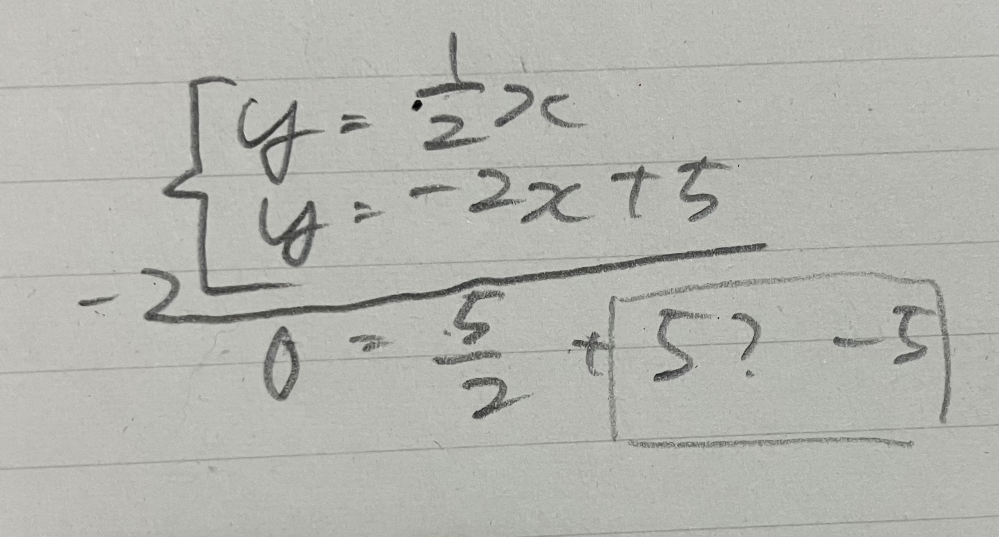 y = 1/2 x
y = -2x + 5
-2
0 = 5/2 + 5? -5